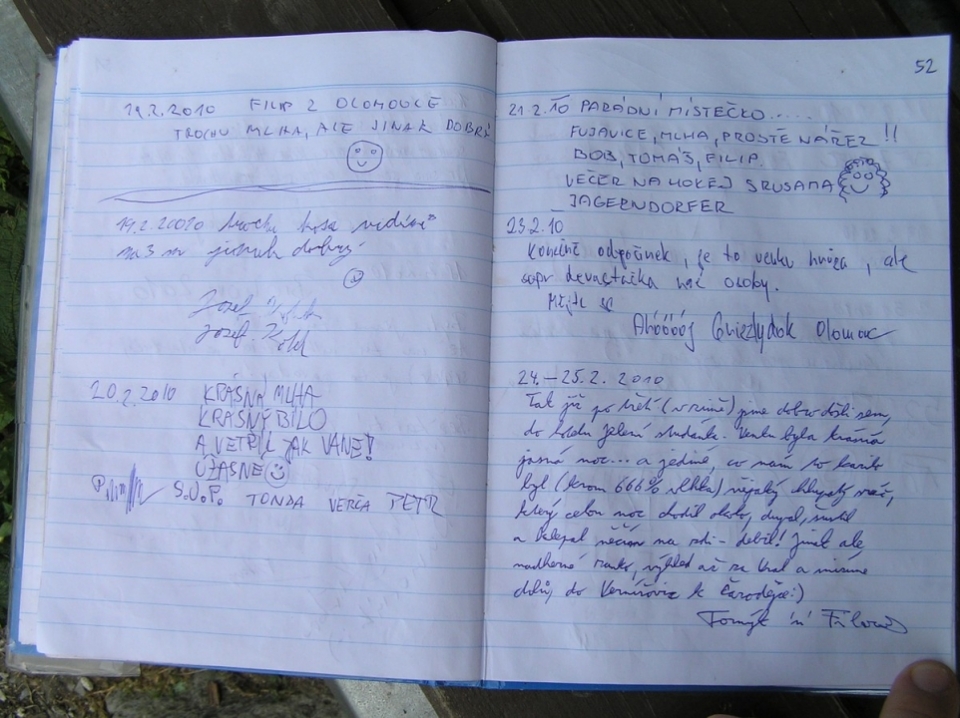 19.2.2010 FILIP Z OLOMOUCE
TROCHU MLHA, ALE JINAK DOBRÁ
19.2.20010 trochu kosa vidění
na 3 m jinak dobrý
Josef
Josef
20.2.2010 KRÁSNÁ MLHA
KRÁSNÝ BÍLO
A VĚTŘÍK JAK VANE!
ÚŽASNE
S.J.P. TONDA VERČA PETR
52
21.2.10 PARÁDNÍ MÍSTEČKO.....
FUJAVICE, MLHA, PROSTĚ NÁŘEZ!!
BOB, TOMÁŠ, FILIP.
VEČER NA HOKEJ S RUSAMA
JÄGERNDORFER
23.2.10
Konečně odpočinek, je to venku hrůza, ale
sopr devastička mé osoby.
Mějte se
Ahóóóój Olomouc
24.–25.2.2010
Tak již po třetí (v zimě) jsme dobře došli sem,
do Jelení studánk. Venku byla krásná
jasná noc... a jediné, co nám to kazilo
byl (krom 666% vlhka) nějaký chlupatý
který celou noc chodil okolo, dupal,
a klepal něčím na zdi - debil! Jinak ale
nádherné ranko, výhled až se a
dolů, do Karlovic k čarodějce:)
Tomýk 'n'